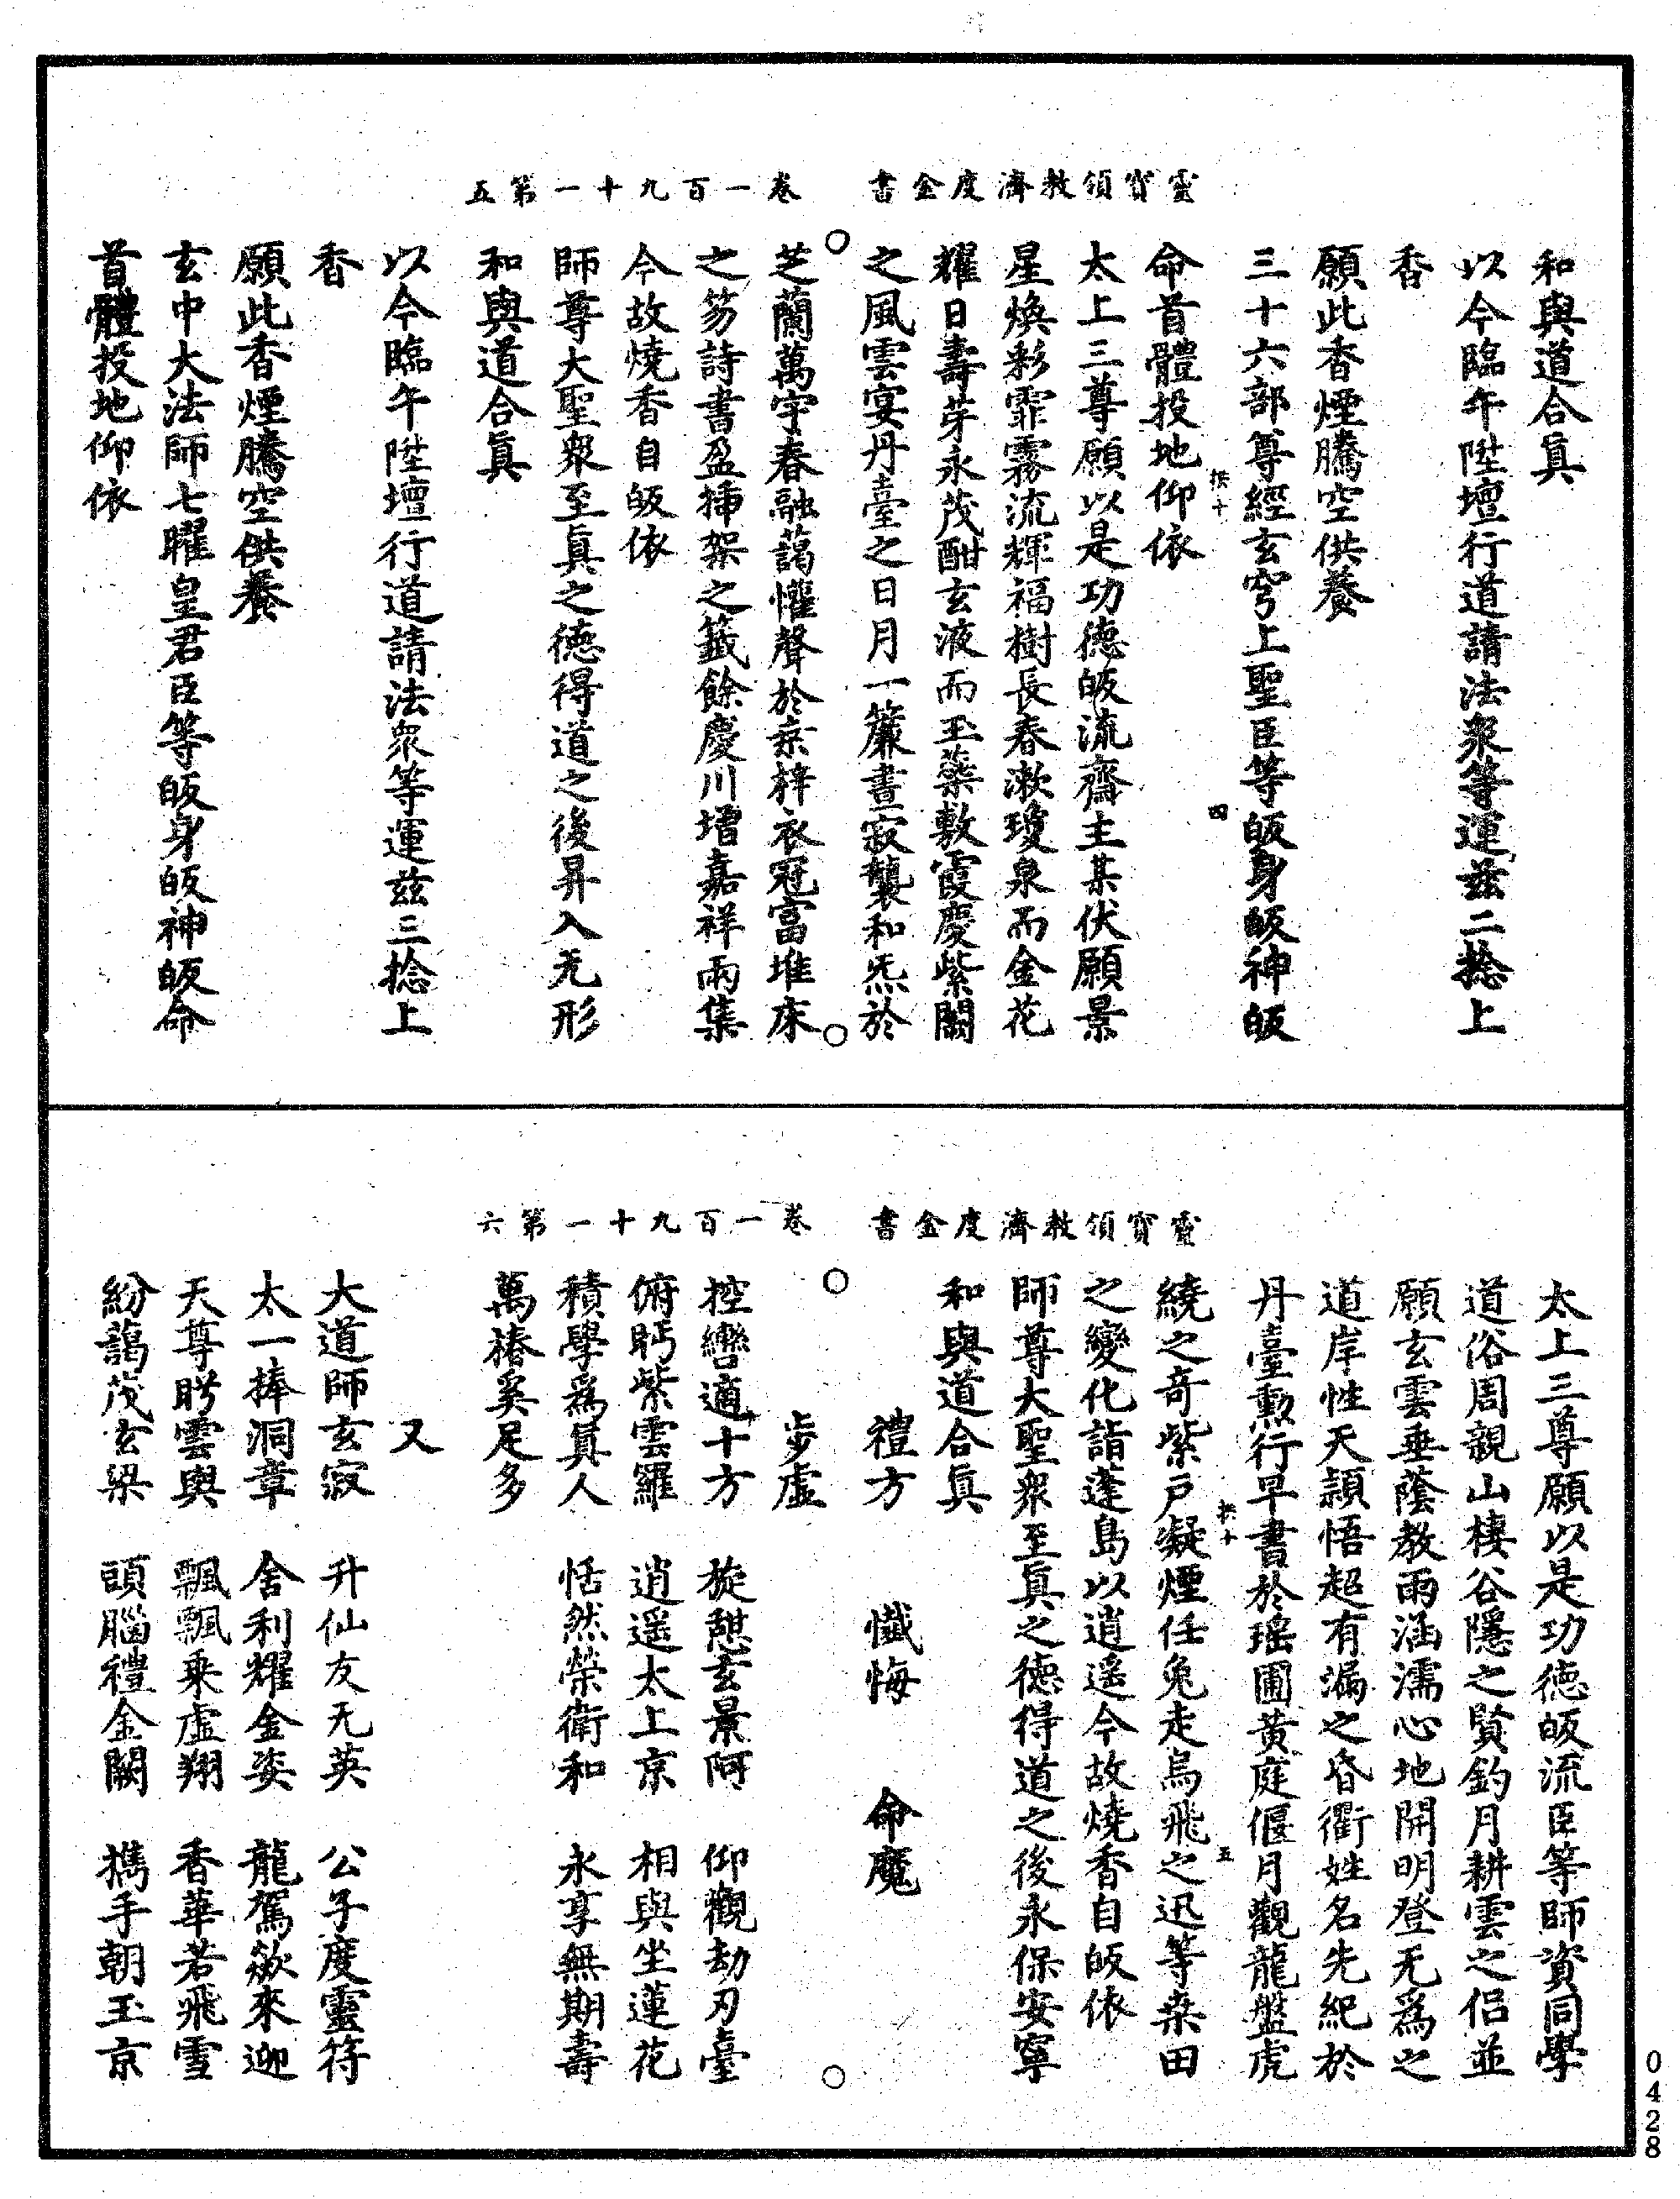 靈寶領教濟度金書　卷一百九十一第五
和與道合眞
以今臨午陞壇行道請法衆等運茲二捻上
香
願此香煙騰空供養
三十六部尊經玄穹上聖臣等皈身皈神皈
命首體投地仰依
太上三尊願以是功德皈流齋主某伏願景
星煥彩霏霧流輝福樹長春漱瓊泉而金花
耀日壽芽永茂酣玄液而玉蘂敷霞慶紫闕
之風雲宴丹臺之日月一簾晝寂襲和炁於
芝蘭萬宇春融藹懽聲於京梓衣冠富堆床
之笏詩書盈揷架之籤餘慶川增嘉祥兩集
今故燒香自皈依
師尊大聖衆至眞之德得道之後昇入无形
和與道合眞
以今臨午陞壇行道請法衆等運茲三捻上
香
願此香煙騰空供養
玄中大法師七曜皇君臣等皈身皈神皈命
首體投地仰依
四
靈寶領教濟度金書　卷一百九十一第六
太上三尊願以是功德皈流臣等師資同學
道俗周親山棲谷隱之賢釣月耕雲之侣並
願玄雲垂蔭教雨涵濡心地開明登无爲之
道岸性天頴悟超有漏之昏衢姓名先紀於
丹臺勲行早書於瑶圃黄庭偃月觀龍盤虎
繞之竒紫戸凝煙任兔走烏飛之迅等桒田
之變化詣蓬島以逍遥今故燒香自皈依
師尊大聖衆至眞之德得道之後永保安寧
和與道合眞
禮方　懺悔　命魔
步虚
控轡適十方　旋憇玄景阿　仰觀劫刃臺
俯眄紫雲羅　逍遥太上京　相與坐蓮花
積學爲眞人　恬然榮衛和　永享無期壽
萬椿奚足多
又
大道師玄寂　升仙友无英　公子度靈符
太一捧洞章　舍利耀金姿　龍駕欻來迎
天尊盻雲輿　飄飄乗虚翔　香華若飛雪
紛藹茂玄梁　頭腦禮金闕　擕手朝玉京
五
0428